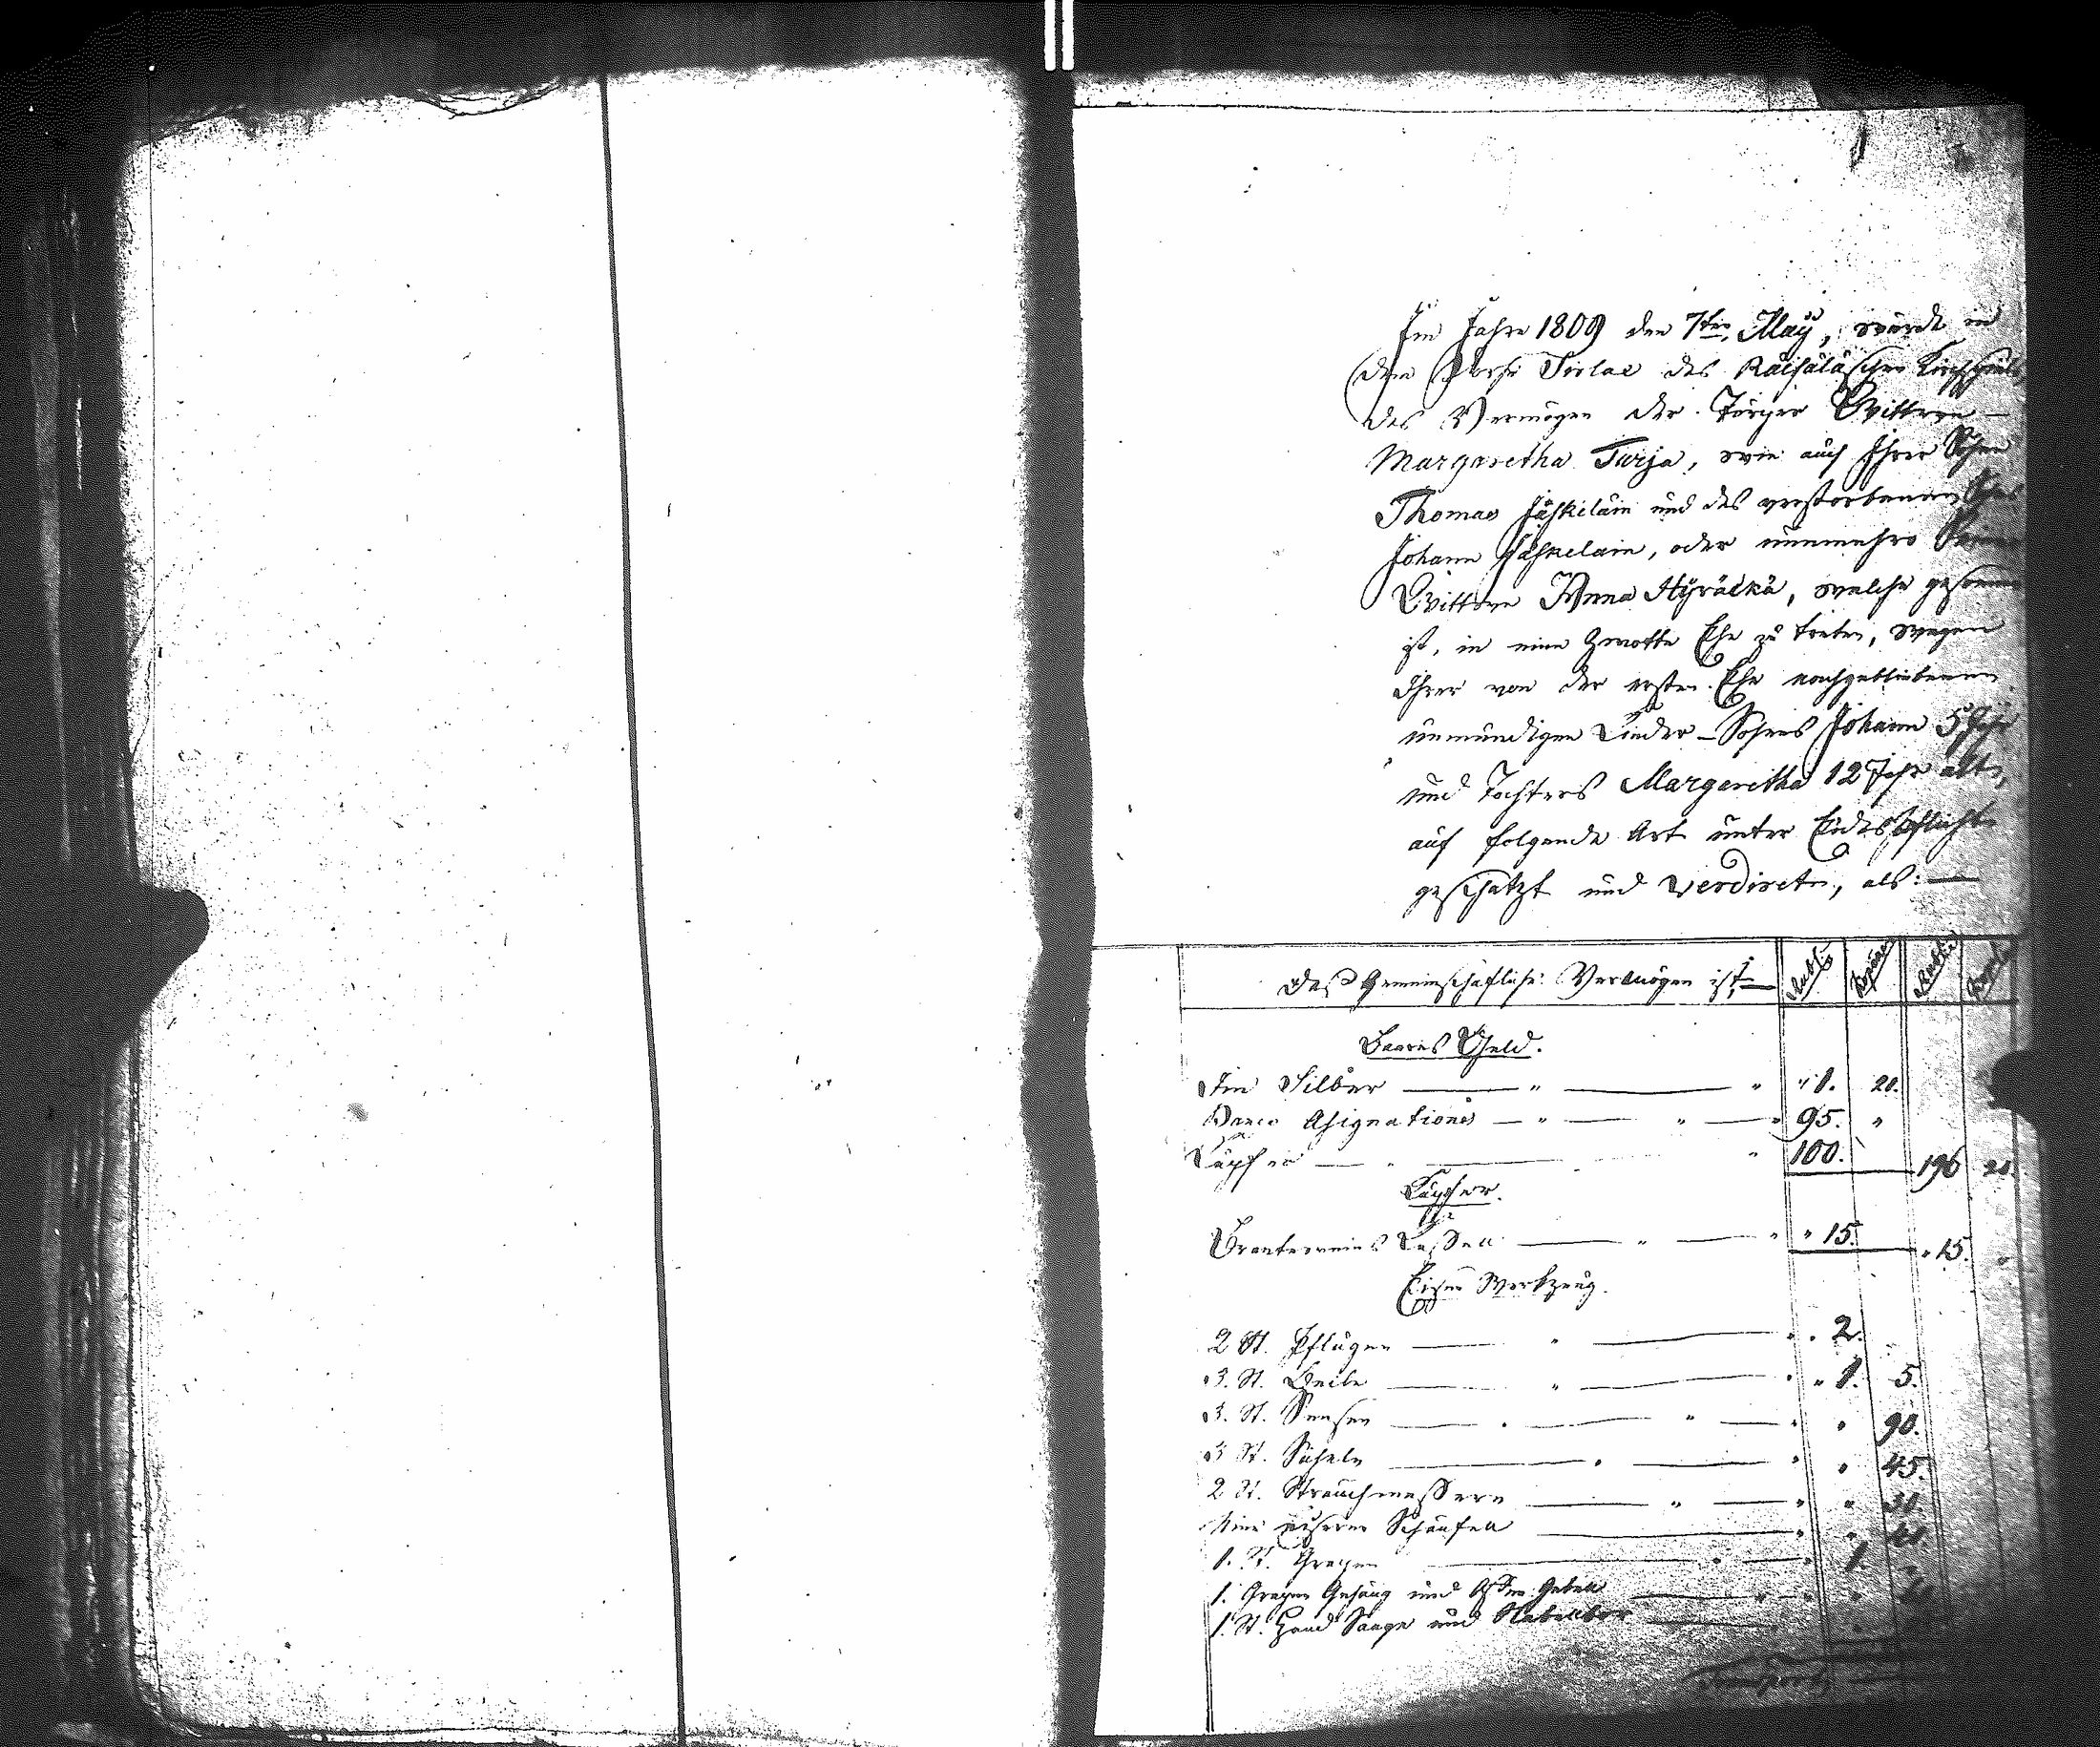 Im Jahre 1809 den 7ten May, wurde in
dem Dorfe Sirlae des Räisäläschen Kirchspiels,
des Vermögen der Körper Wittwe —
Margaretha Turja, wie auch Ihrer Sohn
Thomas Jäskiläin und des verstorbenen Sohns
Johann Jäskelain, oder nunmehro
Wittwe Anna Hyräckä, welche gesonnen
ist, in eine Zwotte Ehe zu treten, wegen
Ihrer von der ersten Ehe nachgebliebenen
unmündigen Kinder – Sohnes Johann 5 Jahr
und Tochters Margaretha 12 Jahr alt,
auf folgende Art unter Eidespflicht
geschätzt und verdiret, als: —
Das Gemeinschafliche Vermögen ist — Rubl. Kopeken Rublen Kopek
Baares Geld.
In Silber — " — " 1. 20.
Banco Assignationes — " — " — 95. "
Kupfer — " — " 100. 196 20.
Kupfer.
Brantweins Kessell — " — " 15. " 15. "
Eisen Werkzeug.
2 St. Pflügen — " — " 2.
3. St. Beile — " — " 1. 5.
3. St. Sensen — " — " — " 90.
3 St. Sicheln — " — " 45.
2 St. Strauchmessern — " — " 30.
Eine eiserne Schaufell — "
1. St. Grapen — " — 1.
1. Grapen Gehäng und Gabell — " — "
1. St. Hand Saage und Nabelbor —
Transport